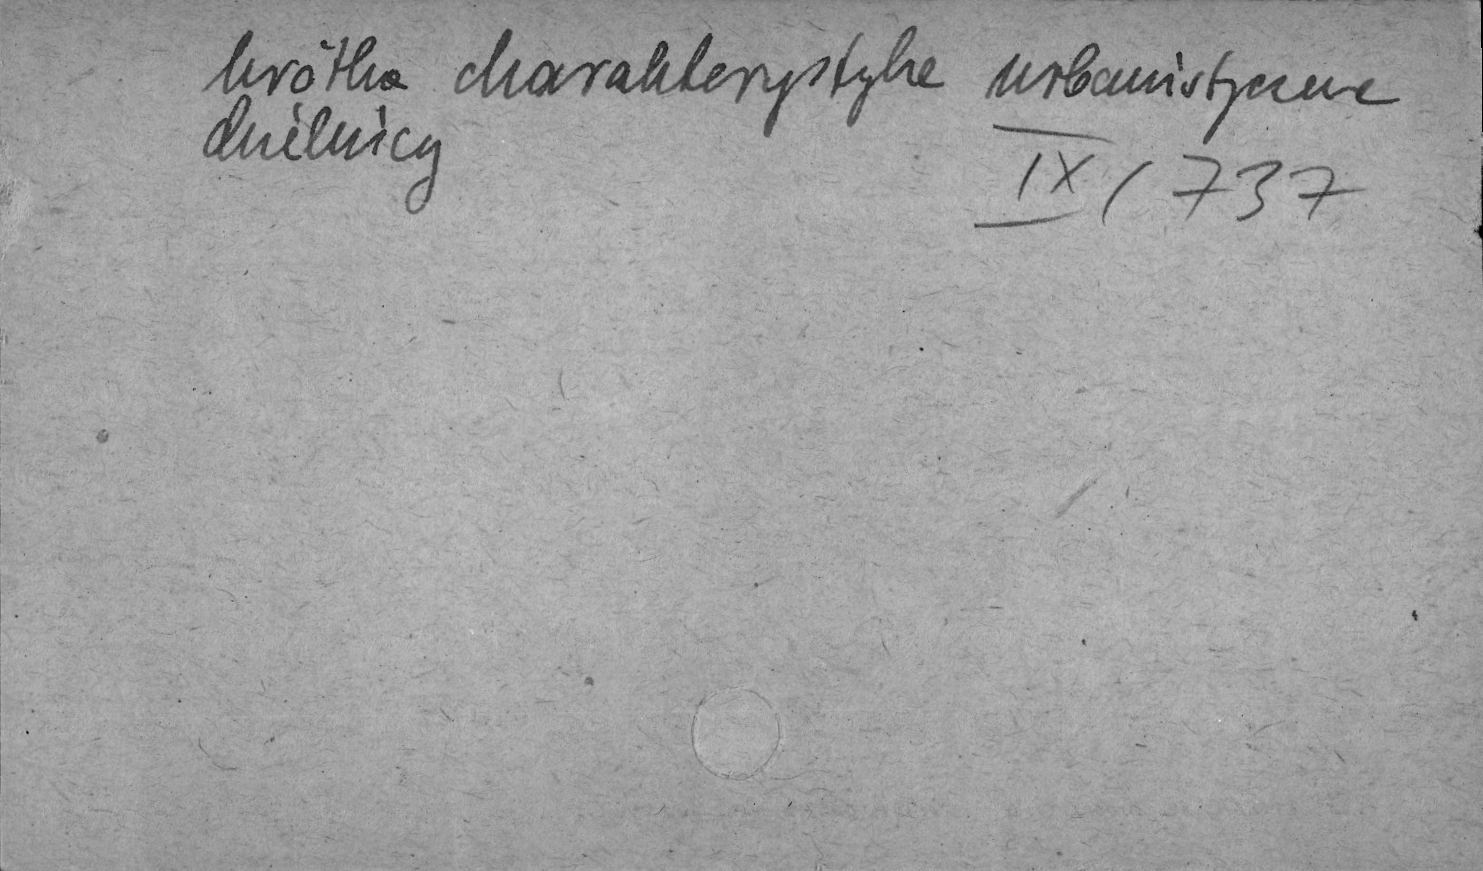 krótka charakterystyka urbanistyczna
dzielnicy
IX / 737